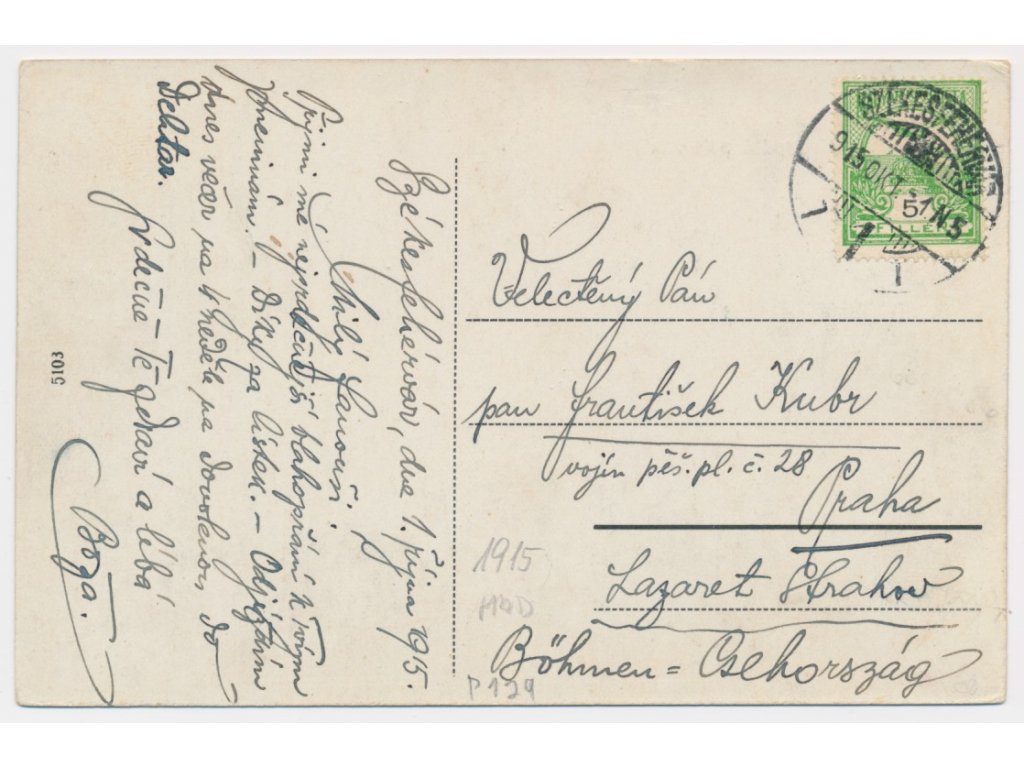 Székesfehérvár, dne 1. října 1915.
Milý Fanouši!
Přijmi mé nejsrdečnější blahopřání k Tvým
jmeninám. – Díky za lístek. – Odjíždím
dnes večer na 4 neděle na dovolenou do
Srdečně Tě zdraví a líbá
Boža.
5103
SZÉKESFEHÉRVÁR
915 OKT
N5
FILLÉR
Velectěný Pán
pan František Kubr
vojín pěš. pl. č. 28
Praha
Lazaret Strahov
Böhmen = Csehország
1915
P129